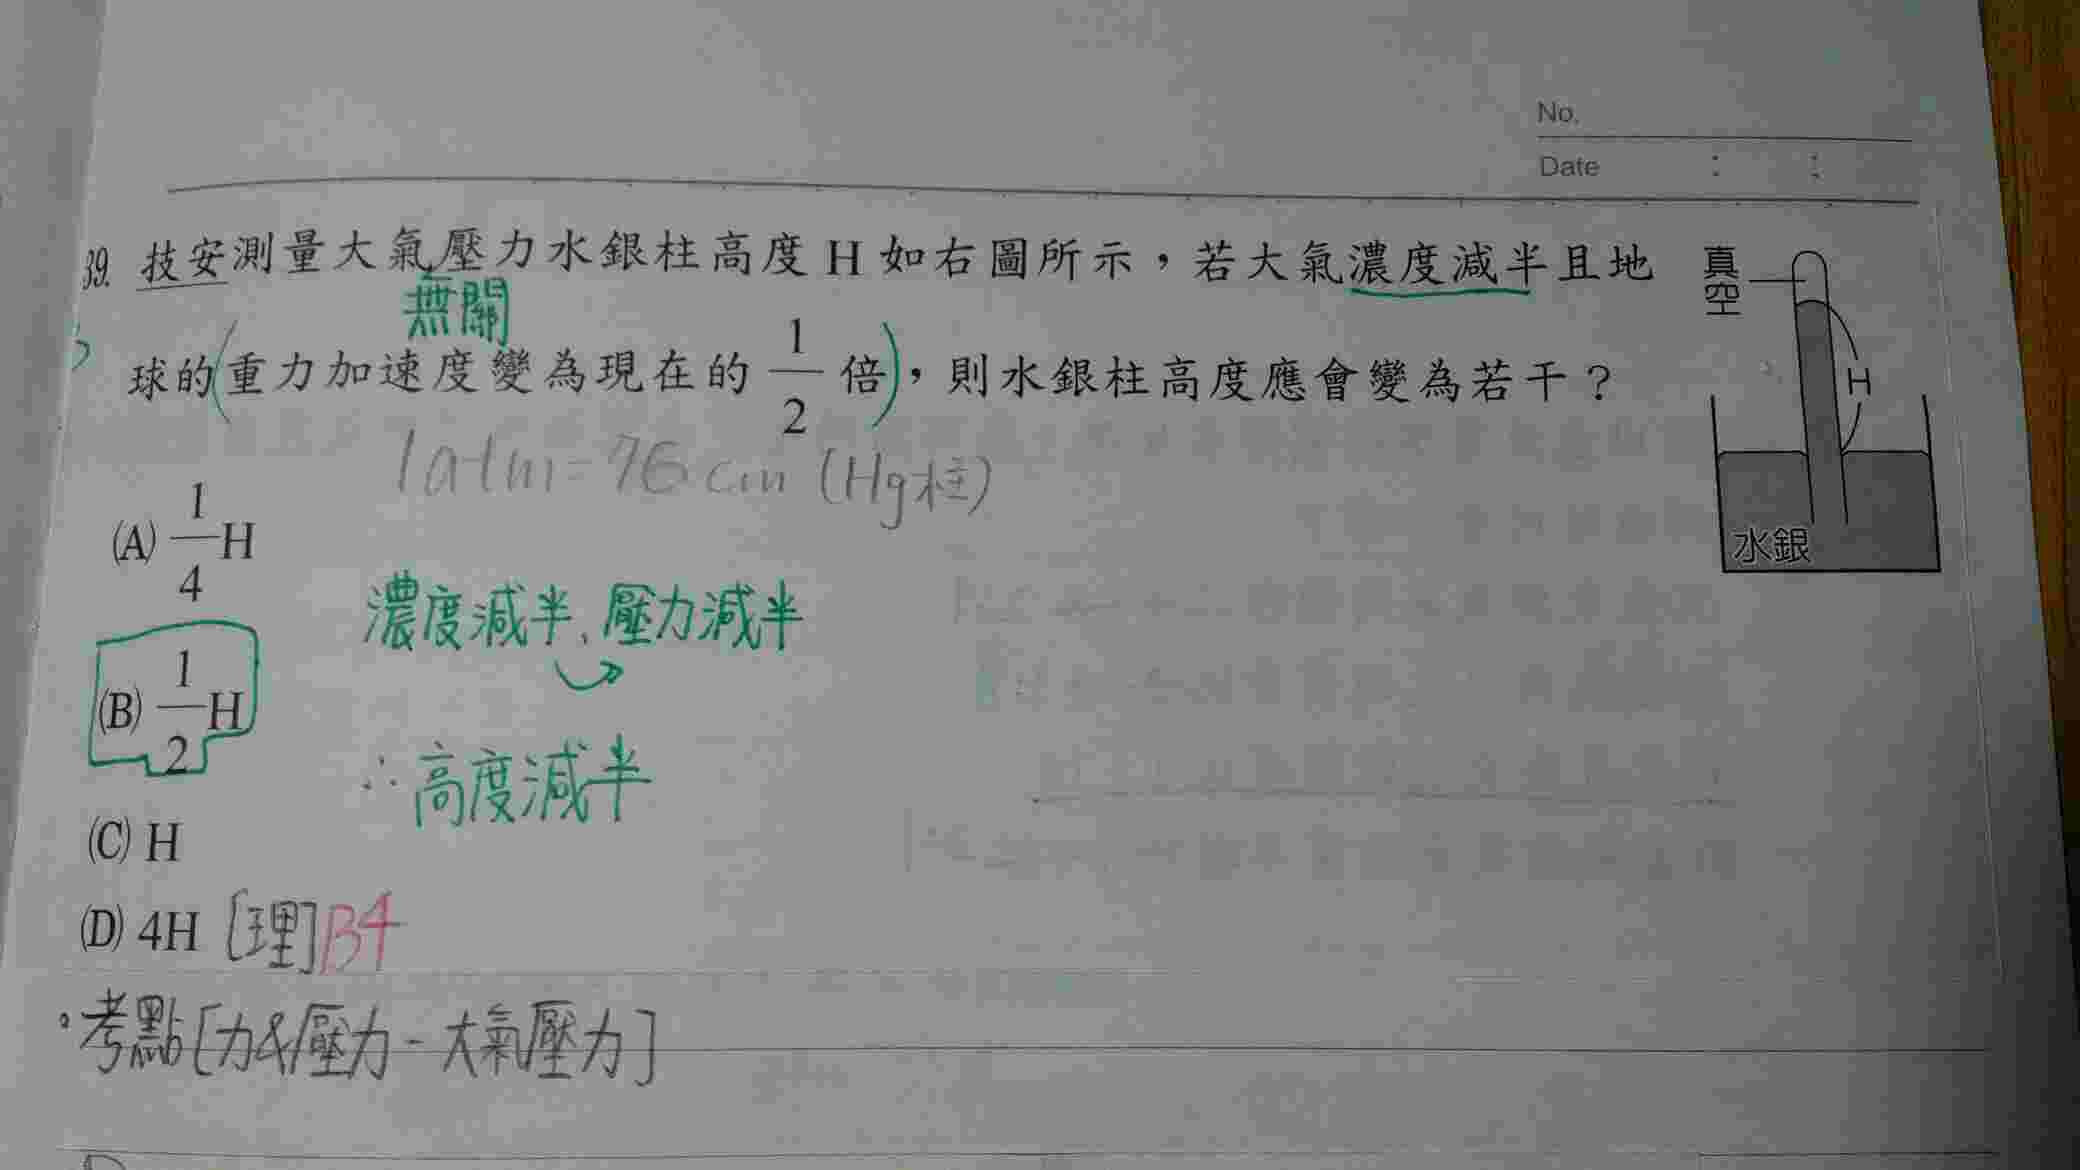 No.
Date : :
39. 技安測量大氣壓力水銀柱高度 H 如右圖所示，若大氣濃度減半且地
無關
球的(重力加速度變為現在的 1/2 倍)，則水銀柱高度應會變為若干？
真空
H
水銀
1atm=76cm (Hg柱)
(A) 1/4 H
濃度減半、壓力減半
(B) 1/2 H
∴高度減半
(C) H
(D) 4H [理]B4
。考點[力&壓力-大氣壓力]